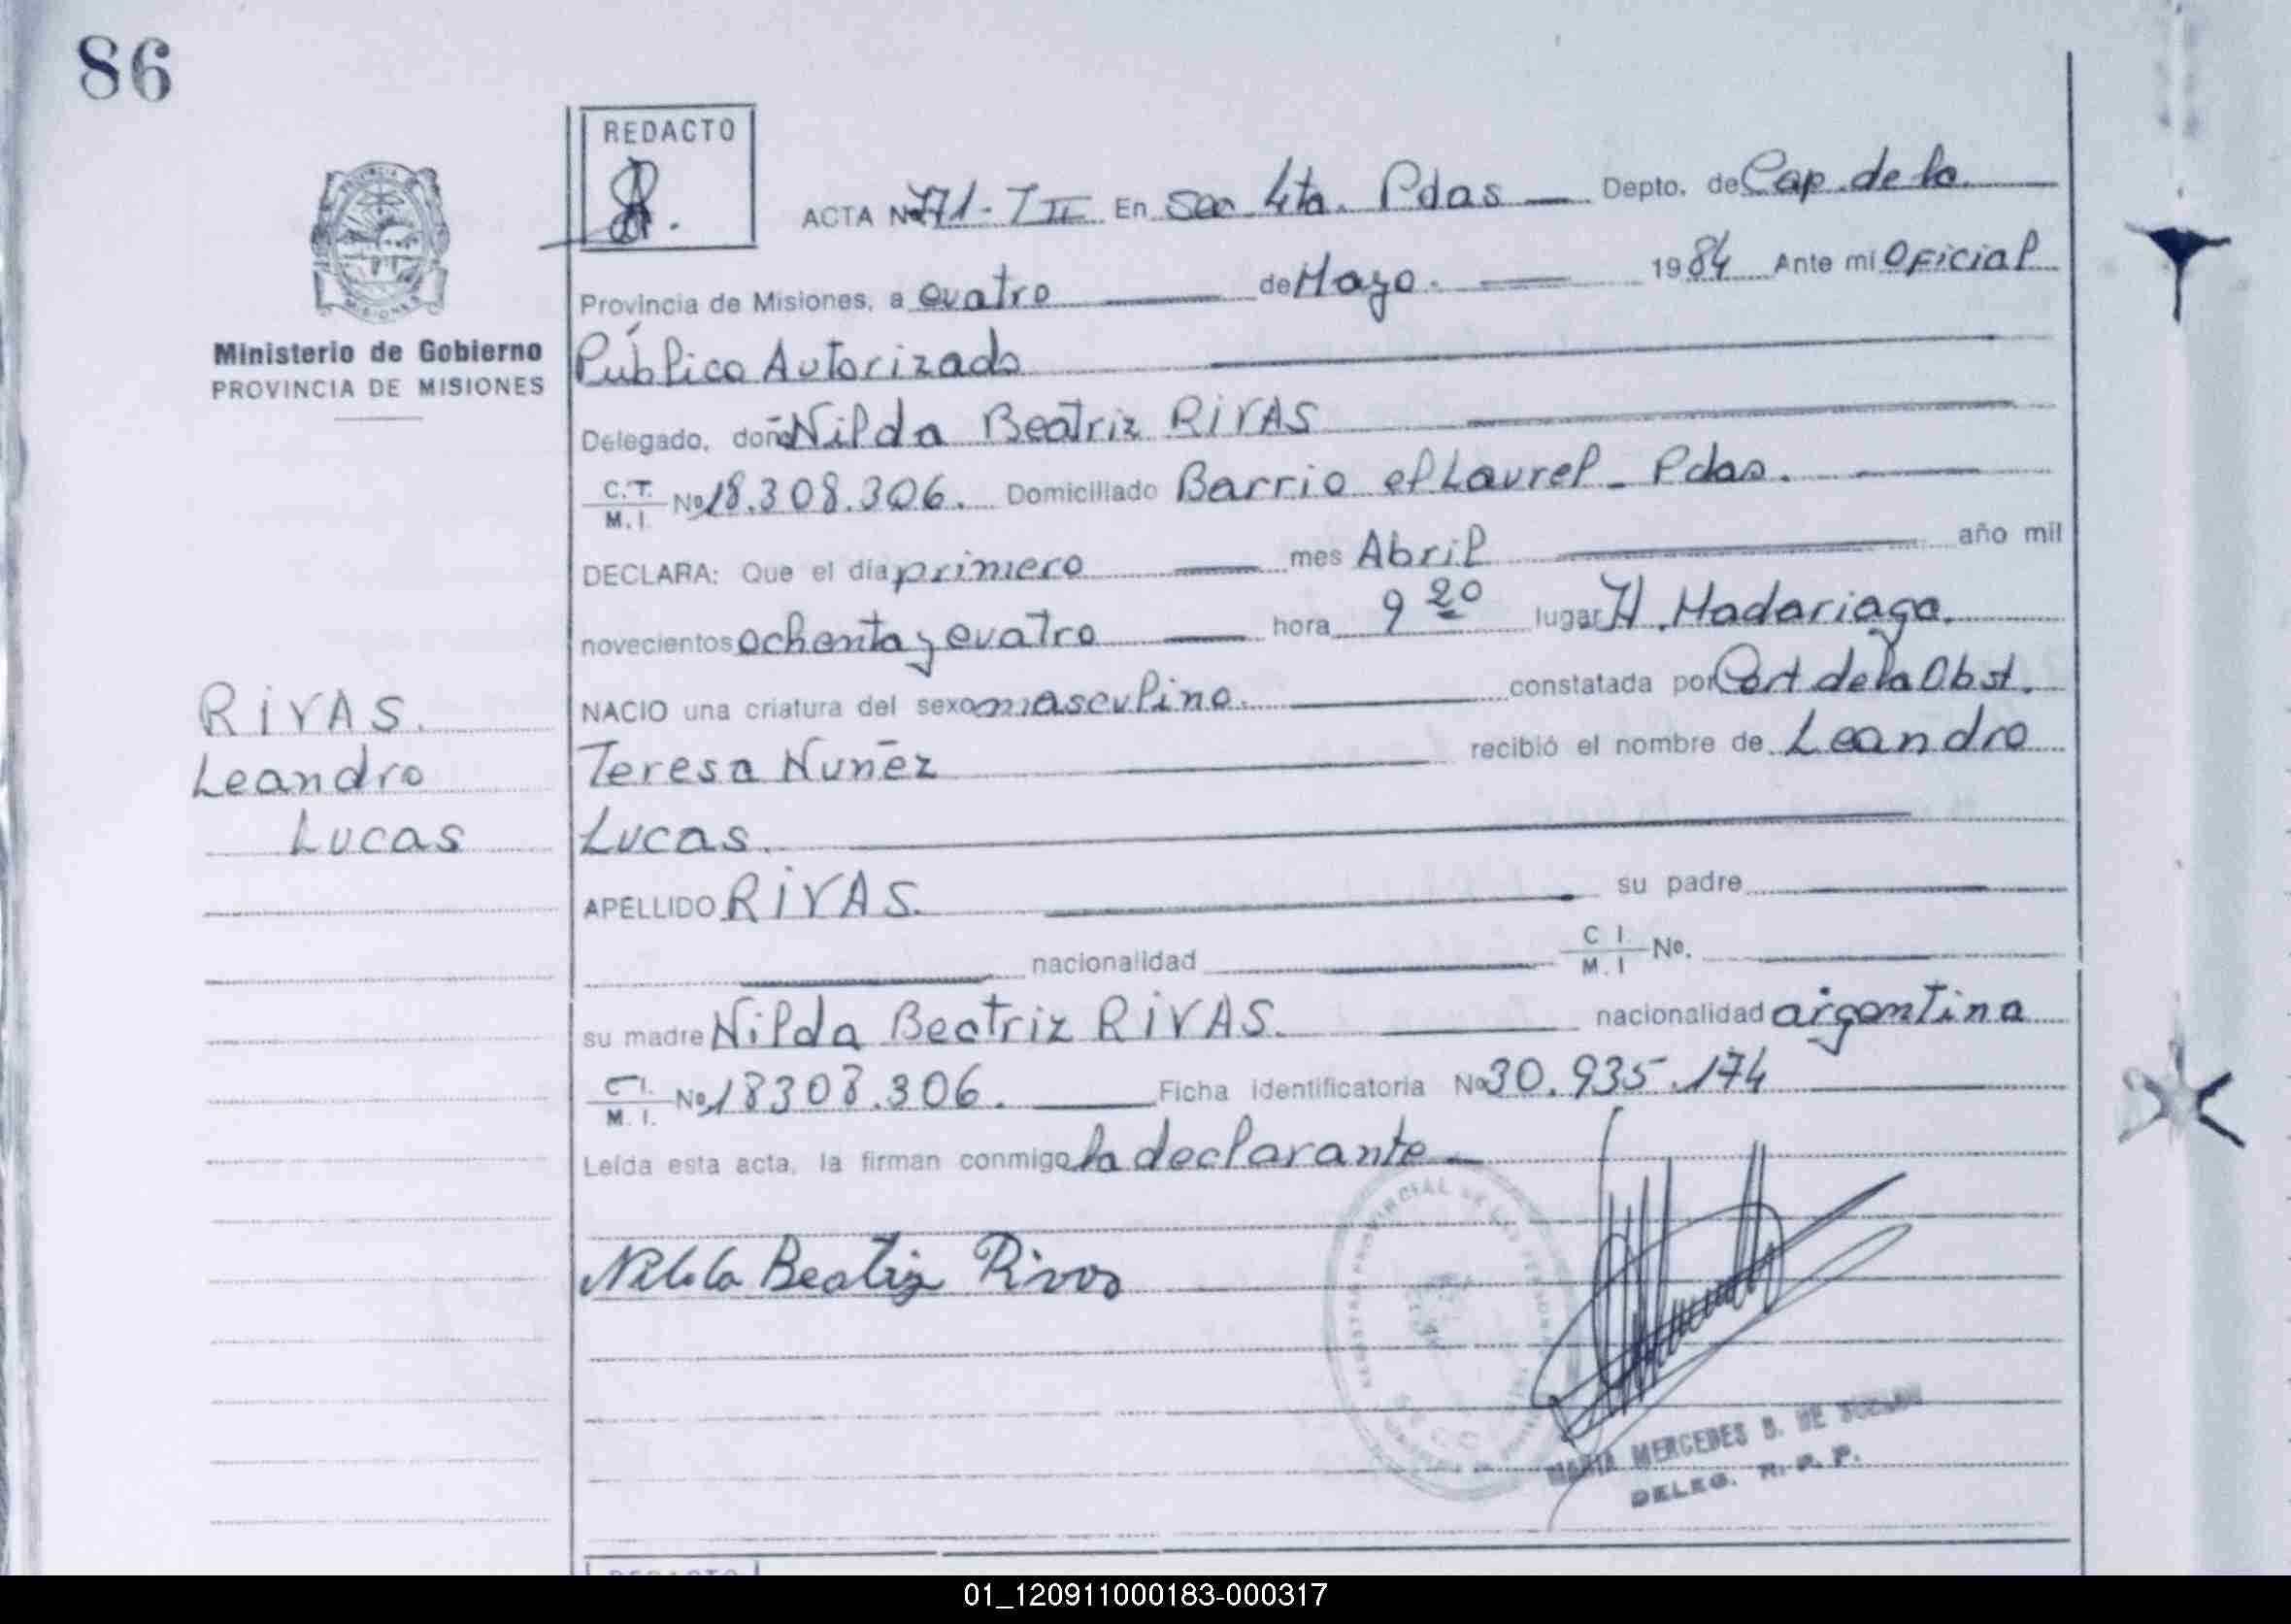 86
REDACTO
ACTA Nº 771-T II En Sec 4ta. Pdas Depto. de Cap. de la
Provincia de Misiones, a cuatro de Mayo. 1984 Ante mi Oficial
Ministerio de Gobierno
PROVINCIA DE MISIONES
Público Autorizado
Delegado, doña Nilda Beatriz RIVAS
C.T. M.I. Nº 18.308.306. Domiciliado Barrio el Laurel - Pdas.
DECLARA: Que el día primero mes Abril año mil
novecientos ochenta y cuatro hora 9 20 lugar H. Madariaga.
NACIO una criatura del sexo masculino. constatada por Cert de la Obst.
Teresa Nuñez recibió el nombre de Leandro
Lucas.
RIVAS.
Leandro
Lucas
APELLIDO RIVAS. su padre
nacionalidad C I. M. I Nº.
su madre Nilda Beatriz RIVAS. nacionalidad argentina
C I. M. I. Nº 18308.306. Ficha identificatoria Nº 30.935.174
Leída esta acta, la firman conmigo la declarante
Nilda Beatriz Rivas
REGISTRO PROVINCIAL DE LAS PERSONAS
MARIA MERCEDES B. DE
DELEG. R. P. P.
REDACTO
01_120911000183-000317